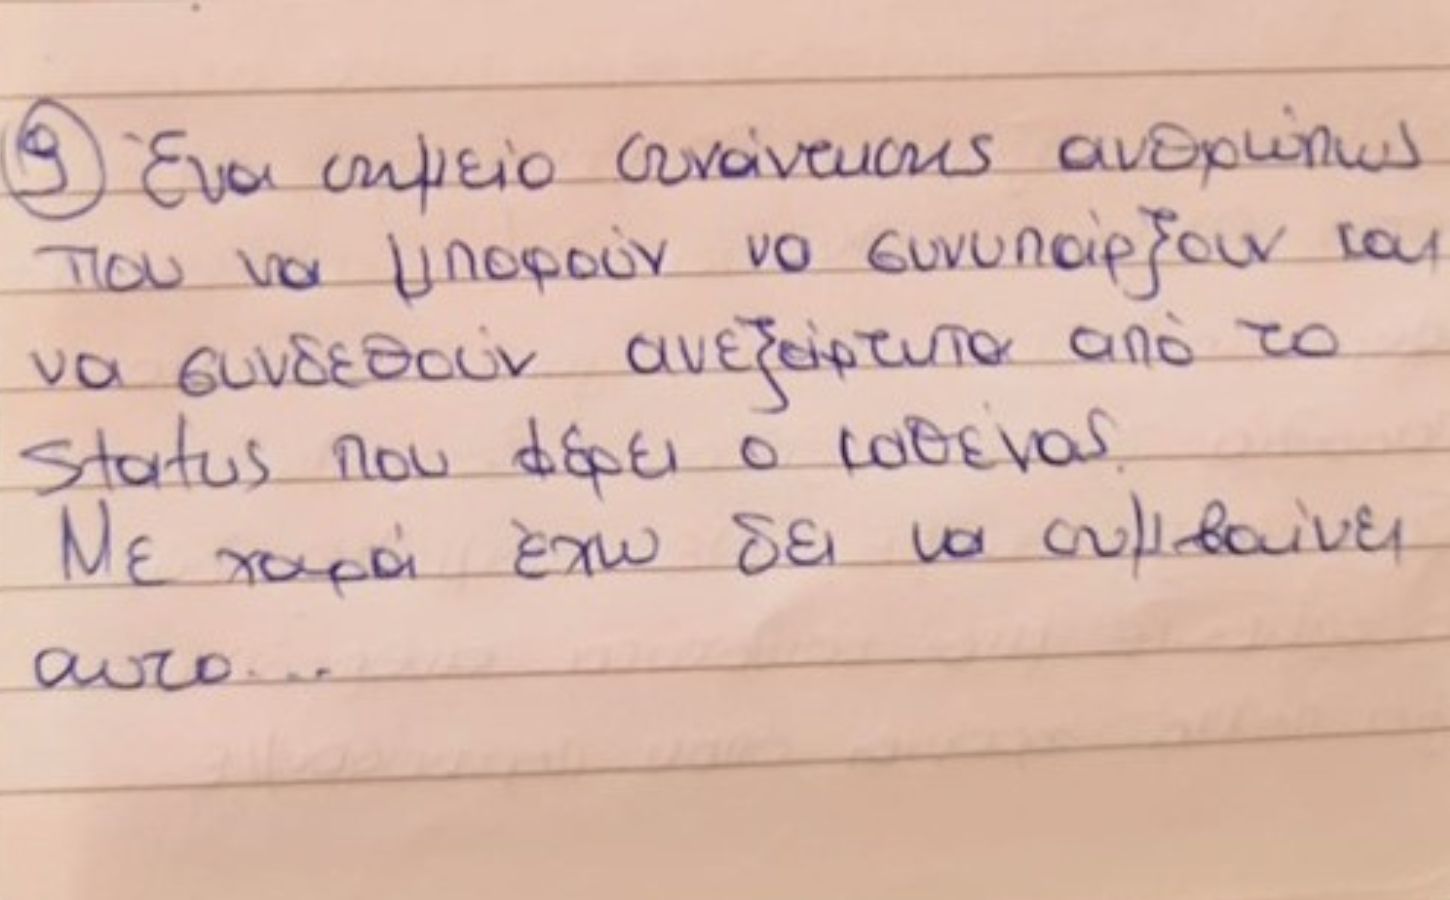 9 Ένα σημείο συνάντησης ανθρώπων
που να μπορούν να συνυπάρξουν και
να συνδεθούν ανεξάρτητα από το
status που φέρει ο καθένας.
Με χαρά έχω δει να συμβαίνει
αυτο....